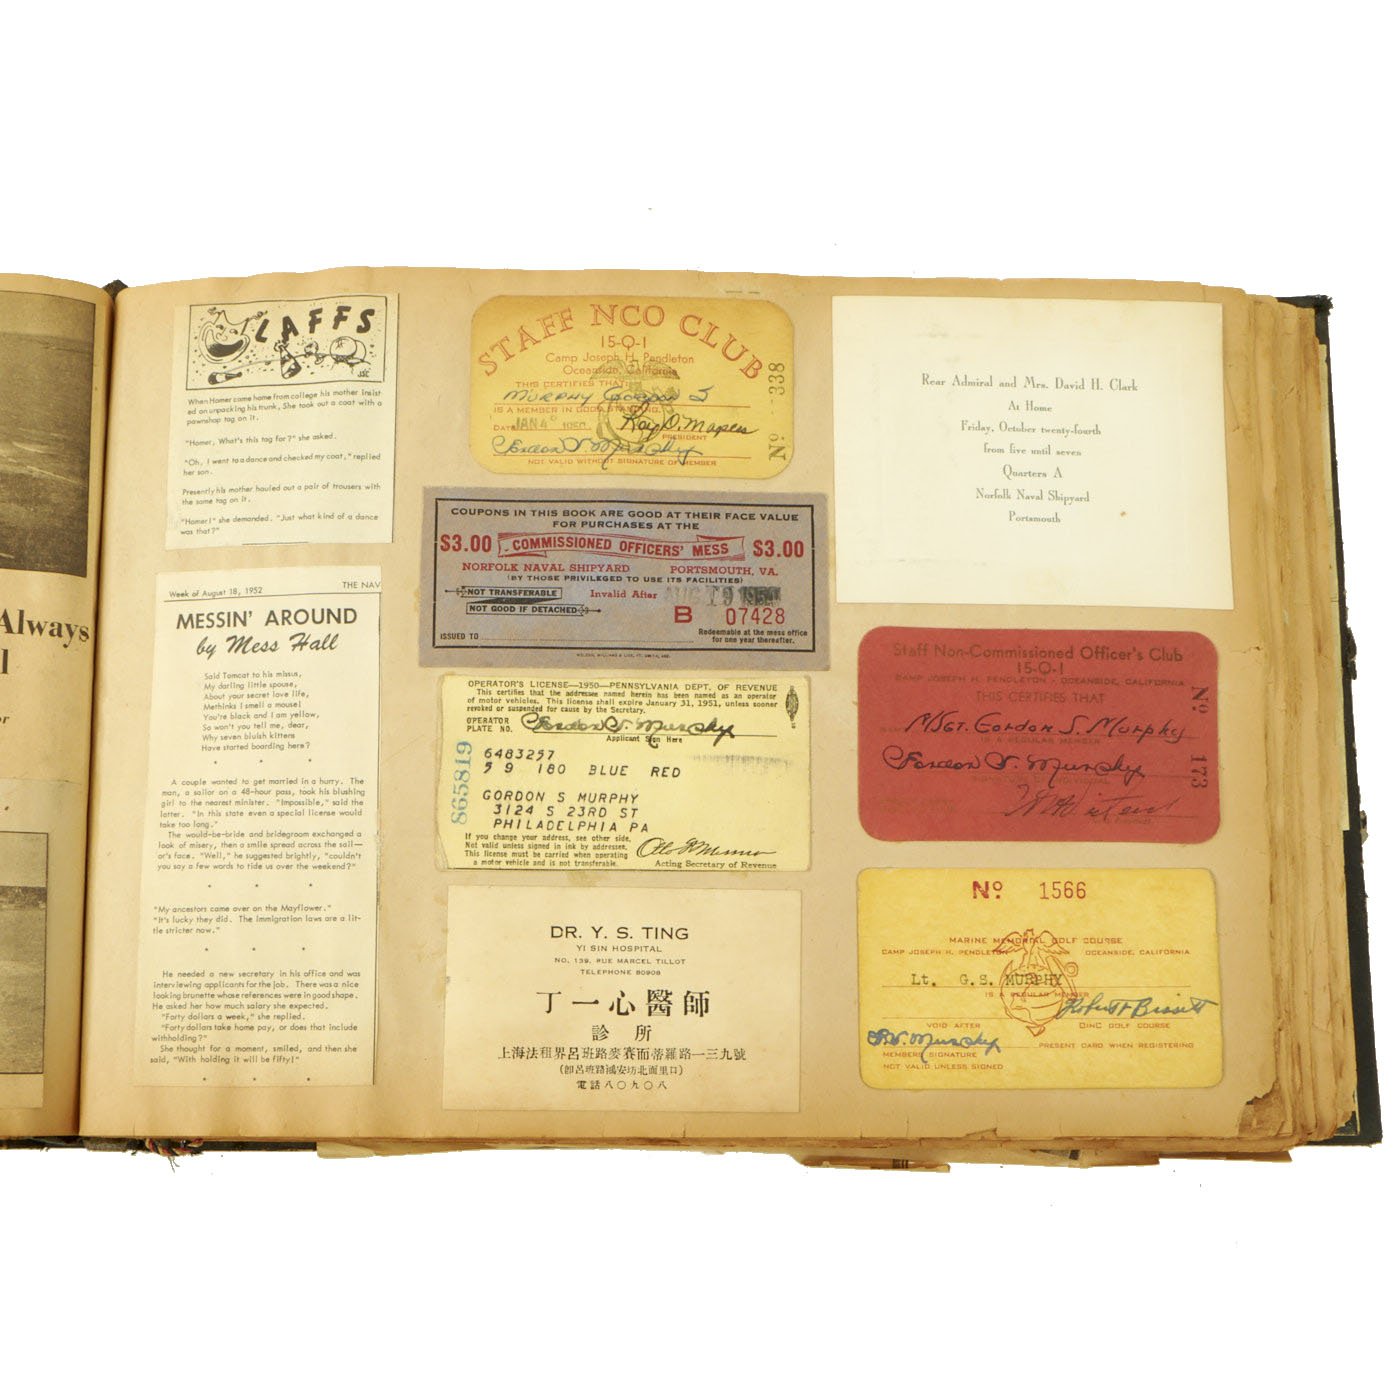 Always
l
or
LAFFS
When Homer came home from college his mother insist
ed on unpacking his trunk. She took out a coat with a
pawnshop tag on it.
"Homer, What's this tag for?" she asked.
"Oh, I went to a dance and checked my coat," replied
her son.
Presently his mother hauled out a pair of trousers with
the same tag on it.
"Homer!" she demanded. "Just what kind of a dance
was that?"
Week of August 18, 1952
THE NAV
MESSIN' AROUND
by Mess Hall
Said Tomcat to his missus,
My darling little spouse,
About your secret love life,
Methinks I smell a mouse!
You're black and I am yellow,
So won't you tell me, dear,
Why seven bluish kittens
Have started boarding here?
* * *
A couple wanted to get married in a hurry. The
man, a sailor on a 48-hour pass, took his blushing
girl to the nearest minister. "Impossible," said the
latter. "In this state even a special license would
take too long."
The would-be-bride and bridegroom exchanged a
look of misery, then a smile spread across the sail—
or's face. "Well," he suggested brightly, "couldn't
you say a few words to tide us over the weekend?"
* * *
"My ancestors came over on the Mayflower."
"It's lucky they did. The immigration laws are a lit-
tle stricter now."
* * *
He needed a new secretary in his office and was
interviewing applicants for the job. There was a nice
looking brunette whose references were in good shape.
He asked her how much salary she expected.
"Forty dollars a week," she replied.
"Forty dollars take home pay, or does that include
withholding?"
She thought for a moment, smiled, and then she
said, "With holding it will be fifty!"
* * *
STAFF NCO CLUB
15-O-1
Camp Joseph H. Pendleton
Oceanside, California
THIS CERTIFIES THAT:
MURPHY Gordon S
IS A MEMBER IN GOOD STANDING.
DATE JAN 4 1950
Ray O. Maples
PRESIDENT
Gordon S. Murphy
NOT VALID WITHOUT SIGNATURE OF MEMBER
No - 338
COUPONS IN THIS BOOK ARE GOOD AT THEIR FACE VALUE
FOR PURCHASES AT THE
$3.00 COMMISSIONED OFFICERS' MESS $3.00
NORFOLK NAVAL SHIPYARD PORTSMOUTH, VA.
(BY THOSE PRIVILEGED TO USE ITS FACILITIES)
NOT TRANSFERABLE Invalid After AUG 19 1954
NOT GOOD IF DETACHED B 07428
ISSUED TO
Redeemable at the mess office
for one year thereafter.
OPERATOR'S LICENSE—1950—PENNSYLVANIA DEPT. OF REVENUE
This certifies that the addressee named herein has been named as an operator
of motor vehicles. This license shall expire January 31, 1951, unless sooner
revoked or suspended for cause by the Secretary.
OPERATOR
PLATE NO.
Gordon S. Murphy
Applicant Sign Here
865819
6483257
5 9 180 BLUE RED
GORDON S MURPHY
3124 S 23RD ST
PHILADELPHIA PA
If you change your address, see other side.
Not valid unless signed in ink by addressee.
This license must be carried when operating
a motor vehicle and is not transferable.
Acting Secretary of Revenue
DR. Y. S. TING
YI SIN HOSPITAL
NO. 139, RUE MARCEL TILLOT
TELEPHONE 80908
丁一心醫師
診所
上海法租界呂班路麥賽而蒂羅路一三九號
(即呂班路鴻安坊北面里口)
電話八〇九〇八
Rear Admiral and Mrs. David H. Clark
At Home
Friday, October twenty-fourth
from five until seven
Quarters A
Norfolk Naval Shipyard
Portsmouth
Staff Non-Commissioned Officer's Club
15-O-1
CAMP JOSEPH H. PENDLETON - OCEANSIDE, CALIFORNIA
THIS CERTIFIES THAT
M/SGT. Gordon S. Murphy
IS A REGULAR MEMBER
Gordon S. Murphy
No 173
No 1566
MARINE MEMORIAL GOLF COURSE
CAMP JOSEPH H. PENDLETON OCEANSIDE, CALIFORNIA
Lt. G.S. MURPHY
IS A REGULAR MEMBER
Robert Bissett
VOID AFTER OINC GOLF COURSE
G.S. Murphy
PRESENT CARD WHEN REGISTERING
MEMBERS SIGNATURE
NOT VALID UNLESS SIGNED